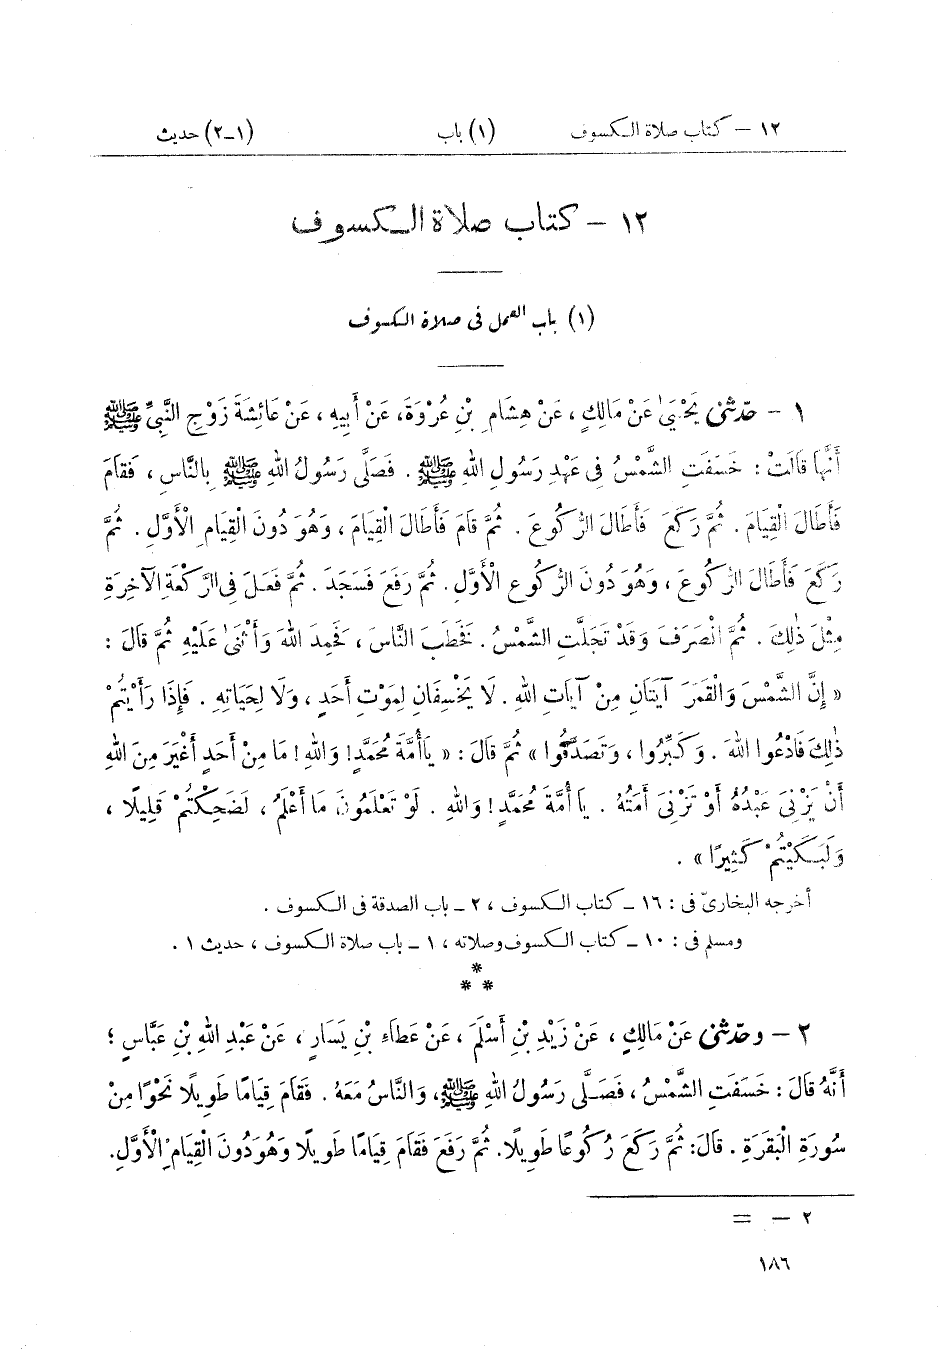 ١٢ – كتاب صلاة الكسوف (١) باب (١-٢) حديث
١٢ – كتاب صلاة الكسوف
(١) باب العمل فى صلاة الكسوف
١ – حدّثنى يَحْيَىٰ عَنْ مَالِكٍ، عَنْ هِشَامِ بْنِ عُرْوَةَ، عَنْ أَبِيهِ، عَنْ عَائِشَةَ زَوْجِ النَّبِيِّ ﷺ
أَنَّهَا قَالَتْ: خَسَفَتِ الشَّمْسُ فِى عَهْدِ رَسُولِ اللهِ ﷺ. فَصَلَّى رَسُولُ اللهِ ﷺ بِالنَّاسِ، فَقَامَ
فَأَطَالَ الْقِيَامَ. ثُمَّ رَكَعَ فَأَطَالَ الرُّكُوعَ. ثُمَّ قَامَ فَأَطَالَ الْقِيَامَ، وَهُوَ دُونَ الْقِيَامِ الْأَوَّلِ. ثُمَّ
رَكَعَ فَأَطَالَ الرُّكُوعَ، وَهُوَ دُونَ الرُّكُوعِ الْأَوَّلِ. ثُمَّ رَفَعَ فَسَجَدَ. ثُمَّ فَعَلَ فِى الرَّكْعَةِ الْآخِرَةِ
مِثْلَ ذٰلِكَ. ثُمَّ انْصَرَفَ وَقَدْ تَجَلَّتِ الشَّمْسُ. فَخَطَبَ النَّاسَ، فَحَمِدَ اللهَ وَأَثْنَىٰ عَلَيْهِ ثُمَّ قَالَ:
« إِنَّ الشَّمْسَ وَالْقَمَرَ آيَتَانِ مِنْ آيَاتِ اللهِ. لَا يَخْسِفَانِ لِمَوْتِ أَحَدٍ، وَلَا لِحَيَاتِهِ. فَإِذَا رَأَيْتُمْ
ذٰلِكَ فَادْعُوا اللهَ. وَكَبِّرُوا، وَتَصَدَّقُوا » ثُمَّ قَالَ: « يَا أُمَّةَ مُحَمَّدٍ! وَاللهِ! مَا مِنْ أَحَدٍ أَغْيَرَ مِنَ اللهِ
أَنْ يَزْنِىَ عَبْدُهُ أَوْ تَزْنِىَ أَمَتُهُ. يَا أُمَّةَ مُحَمَّدٍ! وَاللهِ. لَوْ تَعْلَمُونَ مَا أَعْلَمُ، لَضَحِكْتُمْ قَلِيلًا،
وَلَبَكَيْتُمْ كَثِيرًا ».
أخرجه البخارىّ فى: ١٦ – كتاب الكسوف، ٢ – باب الصدقة فى الكسوف.
ومسلم فى: ١٠ – كتاب الكسوف وصلاته، ١ – باب صلاة الكسوف، حديث ١.
*
* *
٢ – وحدّثنى عَنْ مَالِكٍ، عَنْ زَيْدِ بْنِ أَسْلَمَ، عَنْ عَطَاءِ بْنِ يَسَارٍ، عَنْ عَبْدِ اللهِ بْنِ عَبَّاسٍ؛
أَنَّهُ قَالَ: خَسَفَتِ الشَّمْسُ، فَصَلَّى رَسُولُ اللهِ ﷺ، وَالنَّاسُ مَعَهُ. فَقَامَ قِيَامًا طَوِيلًا نَحْوًا مِنْ
سُورَةِ الْبَقَرَةِ. قَالَ: ثُمَّ رَكَعَ رُكُوعًا طَوِيلًا. ثُمَّ رَفَعَ فَقَامَ قِيَامًا طَوِيلًا وَهُوَ دُونَ الْقِيَامِ الْأَوَّلِ.
٢ – =
١٨٦